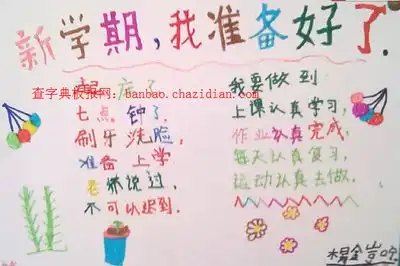 新学期，我准备好了．
查字典板报网：banbao.chazidian.com
七点钟了，
刷牙洗脸，
准备上学
老师说过，
不可以迟到．
我要做到
上课认真学习，
作业认真完成，
每天认真复习，
运动认真去做．